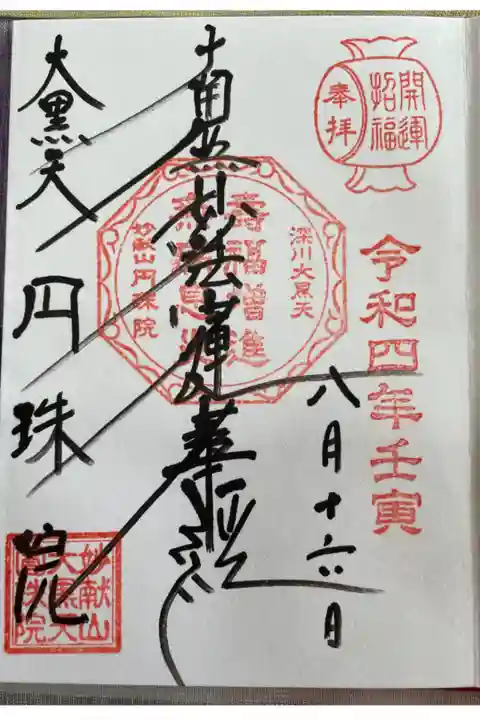 開運
招福
奉拝
令和四年壬寅
八月十六日
南無妙法蓮華経
深川大黒天
寿福増進
妙献山円珠院
大黒天
円珠院
妙献山
大黒天
円珠院